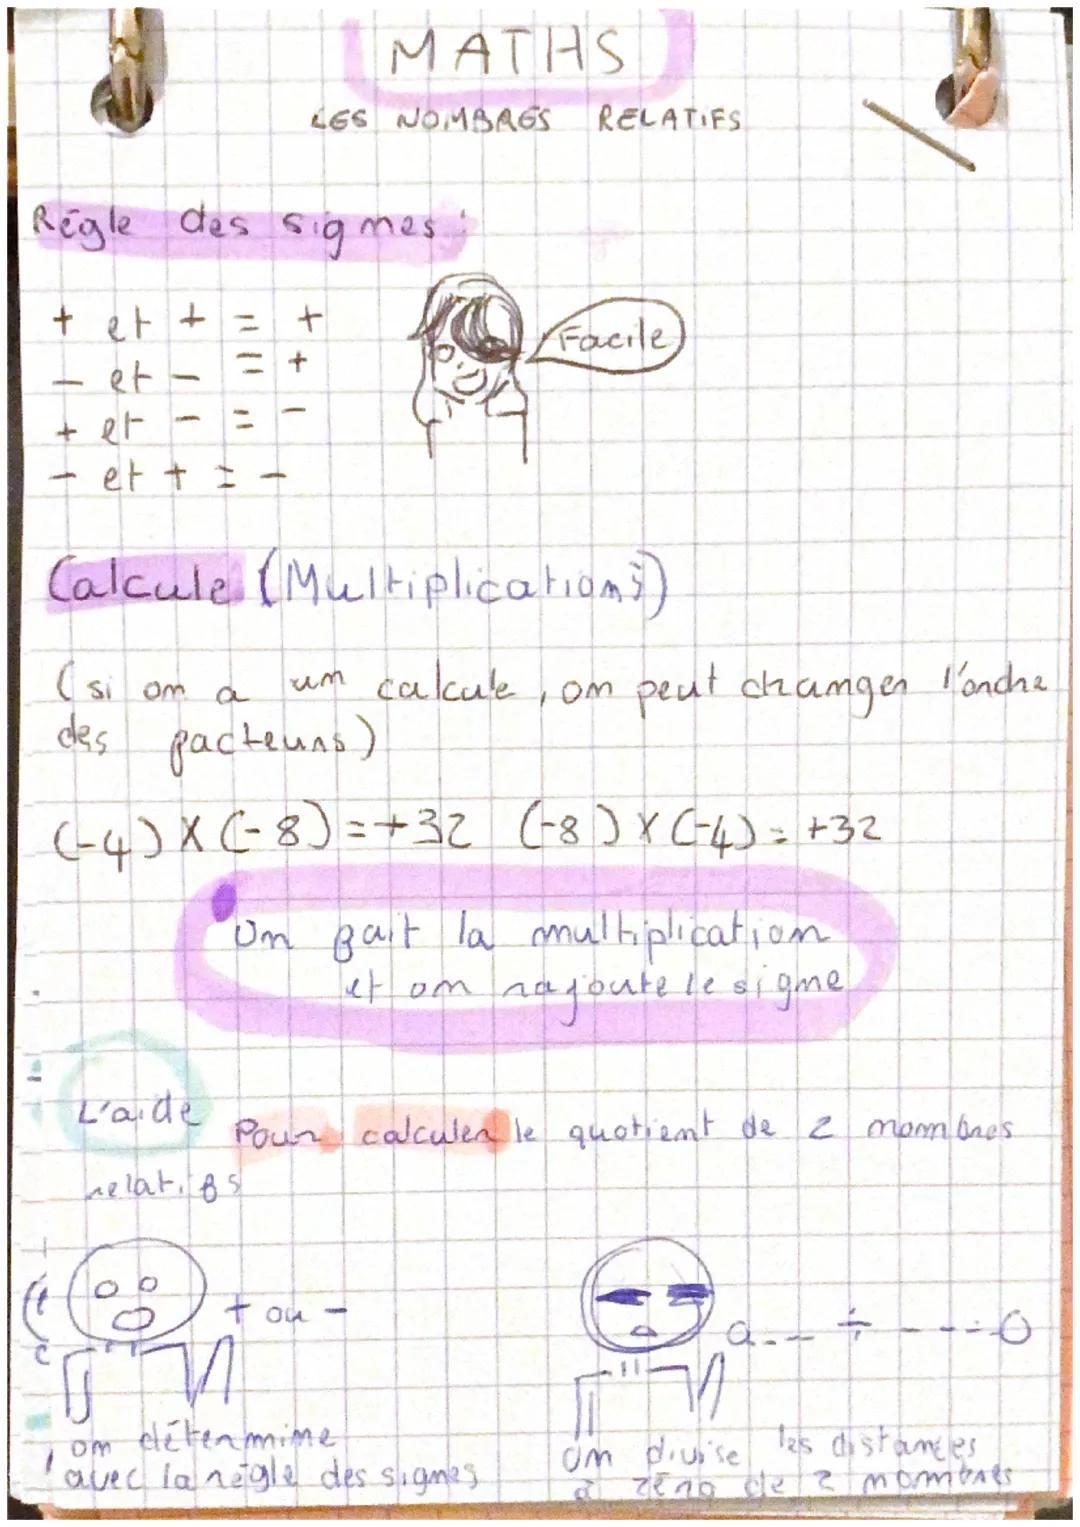 MATHS
LES NOMBRES RELATIFS
Régle des signes :
+ et + = +
- et - = +
+ et - = -
- et + = -
Facile
Calcule (Multiplications)
(si on a un calcule, on peut changer l'ordre
des facteurs)
(-4) X (-8) = +32 (-8) X (-4) = +32
On fait la multiplication
et on rajoute le signe
L'aide Pour calculer le quotient de 2 nombres
relatifs
+ ou -
a--- ÷ ----0
on détermine
avec la règle des signes
On divise les distances
à zéro de 2 nombres